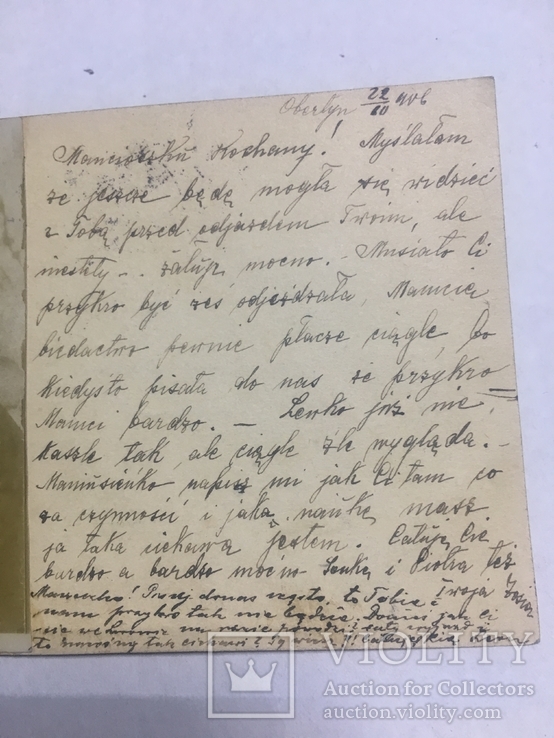 Obertyn 22/III 906
Kochany! Myślałam
że jeszcze będę mogła się widzieć
z Tobą przed odjazdem Twoim, ale
niestety - - żałuję mocno. - Musiało Ci
przykro być żeś odjeżdżała, Mamcia
biedactwo pewnie płacze ciągle, bo
kiedyś to pisała do nas że przykro
Mamci bardzo. - Lewko już nie
kaszle tak, ale ciągle źle wygląda. -
Maniusieńko napisz mi jak Ci tam co
za czynności i jaką naukę masz
ja taka ciekawa jestem. Całuję Cię
bardzo a bardzo mocno i Piotra też
Twoja Zosia
Pisuj do nas często, to Tobie i
nam przykro tak nie będzie. jak Ci
się we Lwowie na razie
to tak Ty wiesz!!
VIOLITY
Auction for Collectors
auction.violity.com